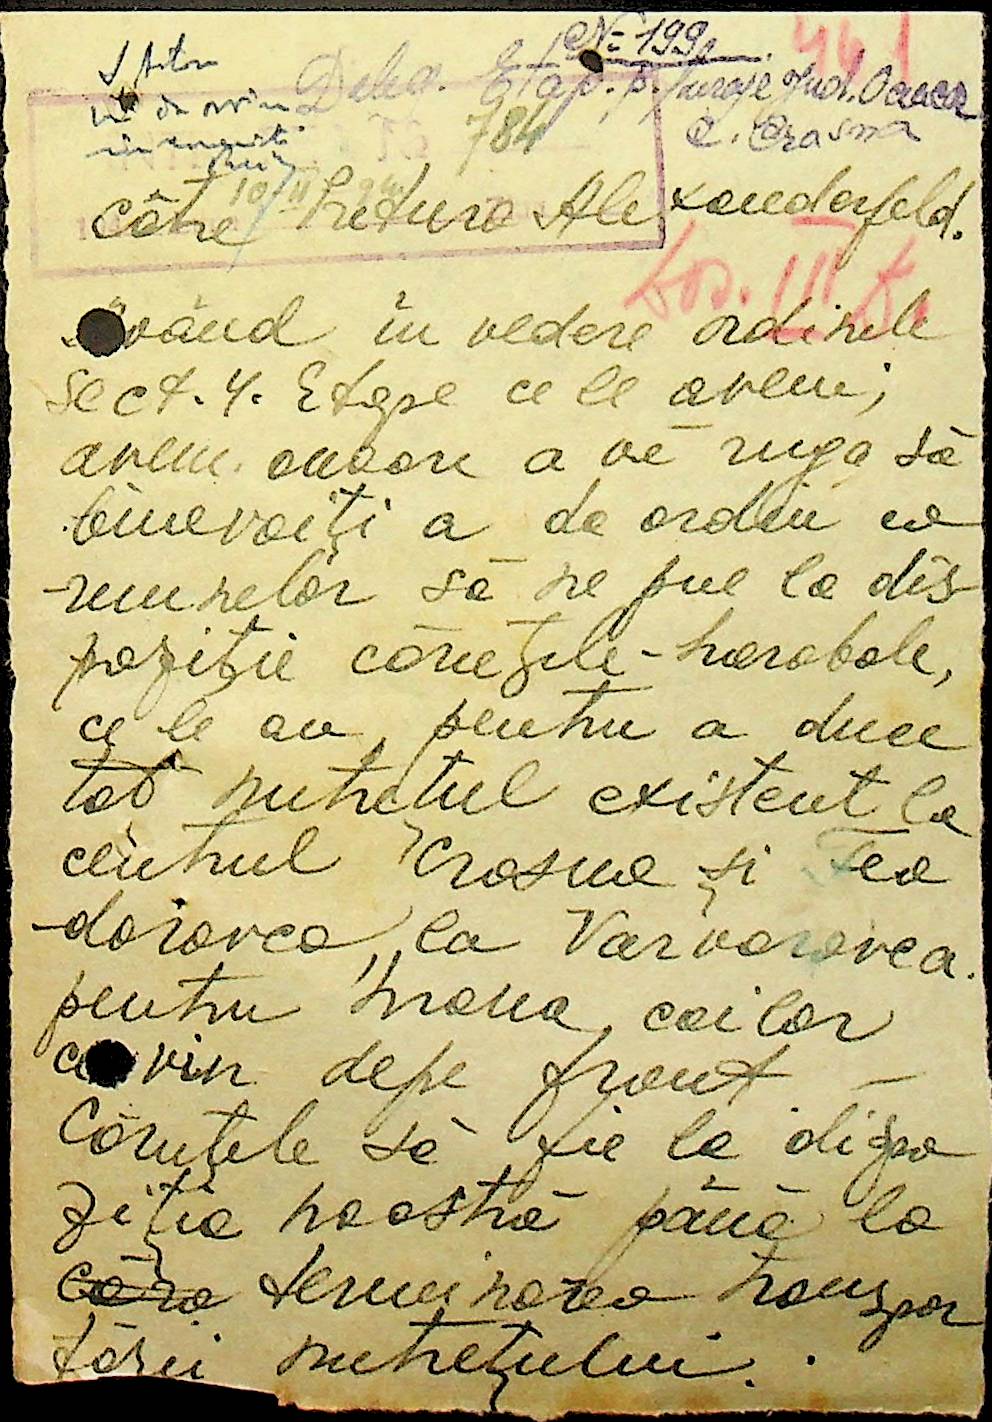 № 199
461
Deleg. Etap. p. furaje Jud. Oceacov
C. Crasna
784
10/II
către Pretura Alexanderfeld.
Dos. III
Având în vedere ordinele
Sect. 4. Etape ce le avem;
avem onoare a vă ruga să
binevoiți a da ordin co
-munelor să ne pue la dis
poziție căruțele-harabale,
ce le au pentru a duce
tot nutrețul existent la
centrul Crasna și Teo
-dorovca, la Varvarovca.
pentru hrana cailor
ce vin depe front –
Căruțele să fie la dispo
ziția noastră până la
căra terminarea transpor
tării nutrețului.